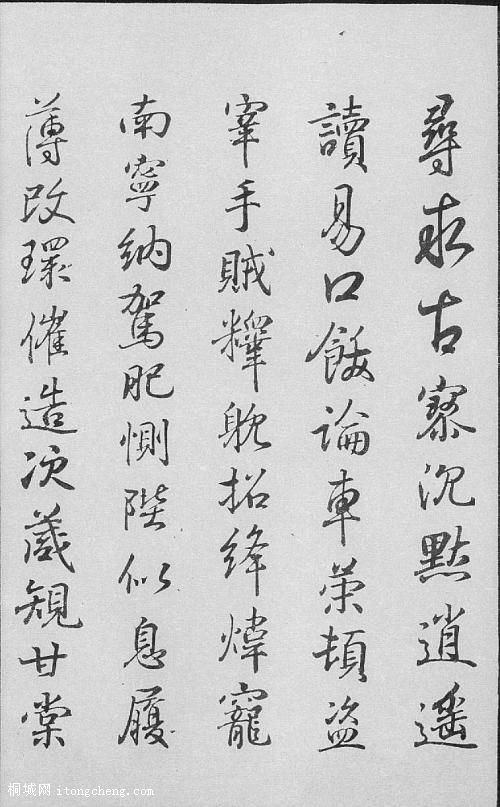 尋求古寮沉默逍遥
讀易口論車榮頓盗
宰手賊招絳煒寵
南寧納駕肥惻陛似息履
薄改環催造次規甘棠
桐城网 itongcheng.com